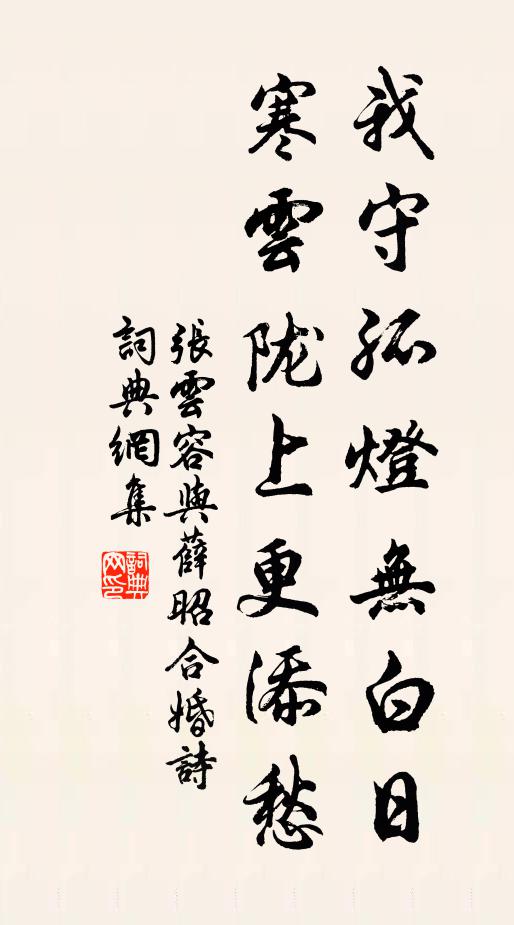 我守孤燈無白日
寒雲陇上更添愁
張雲容與薛昭合婚詩
詞典網集
詞典
网印